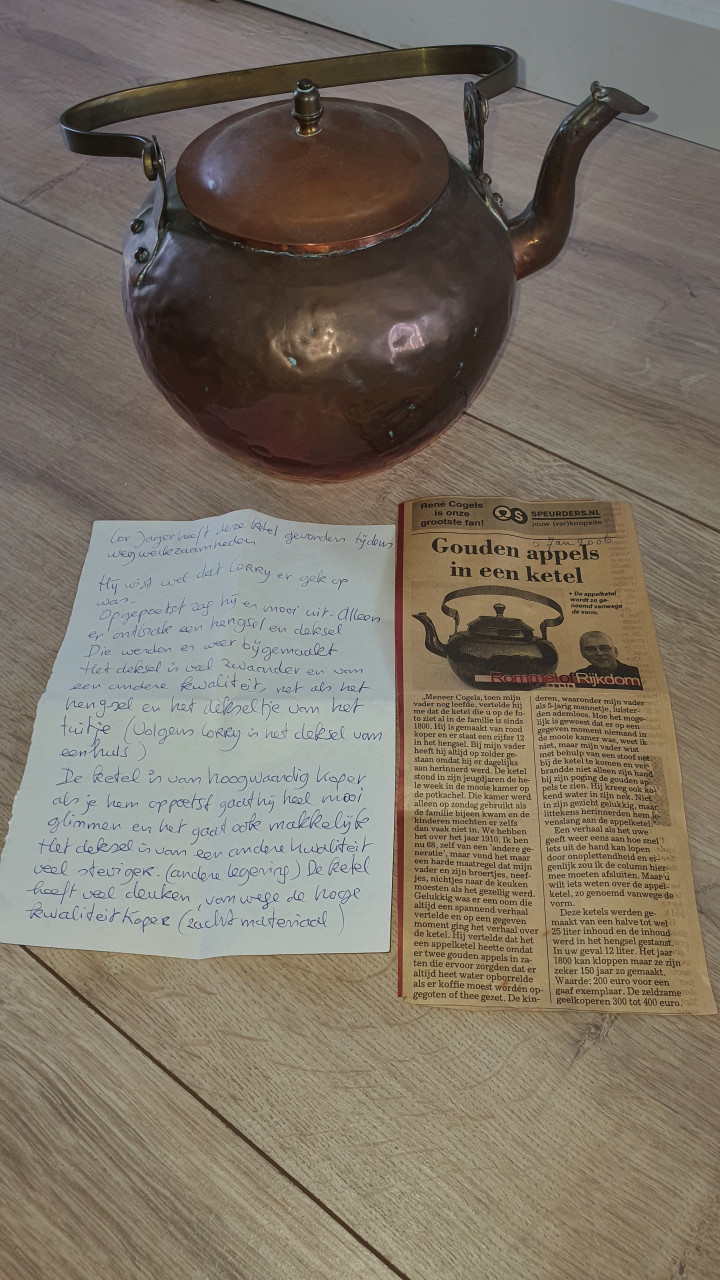 Cor Jager heeft deze ketel gevonden tijdens
wegwerkzaamheden
Hij wist wel dat LORRY er gek op
was.
Opgepoetst zag hij er mooi uit. Alleen
er ontbrak een hengsel en deksel
Die werden er weer bijgemaakt
Het deksel is veel zwaarder en van
een andere kwaliteit, net als het
hengsel en het dekseltje van het
tuitje (Volgens LORRY is het deksel van
een huls)
De ketel is van hoogwaardig koper
als je hem oppoetst gaat hij heel mooi
glimmen en het gaat ook makkelijk
Het deksel is van een andere kwaliteit
veel steviger. (andere legering) De ketel
heeft veel deuken, vanwege de hoge
kwaliteit koper (zacht materiaal)
René Cogels
is onze
grootste fan!
SPEURDERS.NL
jouw (ver)koopsite
5 Jan 2006
Gouden appels
in een ketel
• De appelketel
wordt zo ge-
noemd vanwege
de vorm.
Rommel of Rijkdom
„Meneer Cogels, toen mijn
vader nog leefde, vertelde hij
me dat de ketel die u op de fo-
to ziet al in de familie is sinds
1800. Hij is gemaakt van rood
koper en er staat een cijfer 12
in het hengsel. Bij mijn vader
heeft hij altijd op zolder ge-
staan omdat hij er dagelijks
aan herinnerd werd. De ketel
stond in zijn jeugdjaren de he-
le week in de mooie kamer op
de potkachel. De kamer werd
alleen op zondag gebruikt als
de familie bijeen kwam en de
kinderen mochten er zelfs
dan vaak niet in. We hebben
het over het jaar 1910. Ik ben
nu 68, zelf van een 'andere ge-
neratie', maar vond het maar
een harde maatregel dat mijn
vader en zijn broertjes, neef-
jes, nichtjes naar de keuken
moesten als het gezellig werd.
Gelukkig was er een oom die
altijd een spannend verhaal
vertelde en op een gegeven
moment ging het verhaal over
de ketel. Hij vertelde dat het
een appelketel heette omdat
er twee gouden appels in za-
ten die ervoor zorgden dat er
altijd heet water opborrelde
als er koffie moest worden op-
gegoten of thee gezet. De kin-
deren, waaronder mijn vader
als 5-jarig mannetje, luister-
den ademloos. Hoe het moge-
lijk is geweest dat er op een
gegeven moment niemand in
de mooie kamer was, weet ik
niet, maar mijn vader wist
met behulp van een stoof net
bij de ketel te komen en ver-
brandde niet alleen zijn hand
bij zijn poging de gouden ap-
pels te zien. Hij kreeg ook ko-
kend water in zijn nek. Niet
in zijn gezicht gelukkig, maar
littekens herinnerden hem le-
venslang aan de appelketel."
Een verhaal als het uwe
geeft weer eens aan hoe snel
iets uit de hand kan lopen
door onoplettendheid en ei-
genlijk zou ik de column hier-
mee moeten afsluiten. Maar u
wilt iets weten over de appel-
ketel, zo genoemd vanwege de
vorm.
Deze ketels werden ge-
maakt van een halve tot wel
25 liter inhoud en de inhoud
werd in het hengsel gestanst.
In uw geval 12 liter. Het jaar
1800 kan kloppen maar ze zijn
zeker 150 jaar zo gemaakt.
Waarde: 200 euro voor een
gaaf exemplaar. De zeldzame
geelkoperen 300 tot 400 euro.